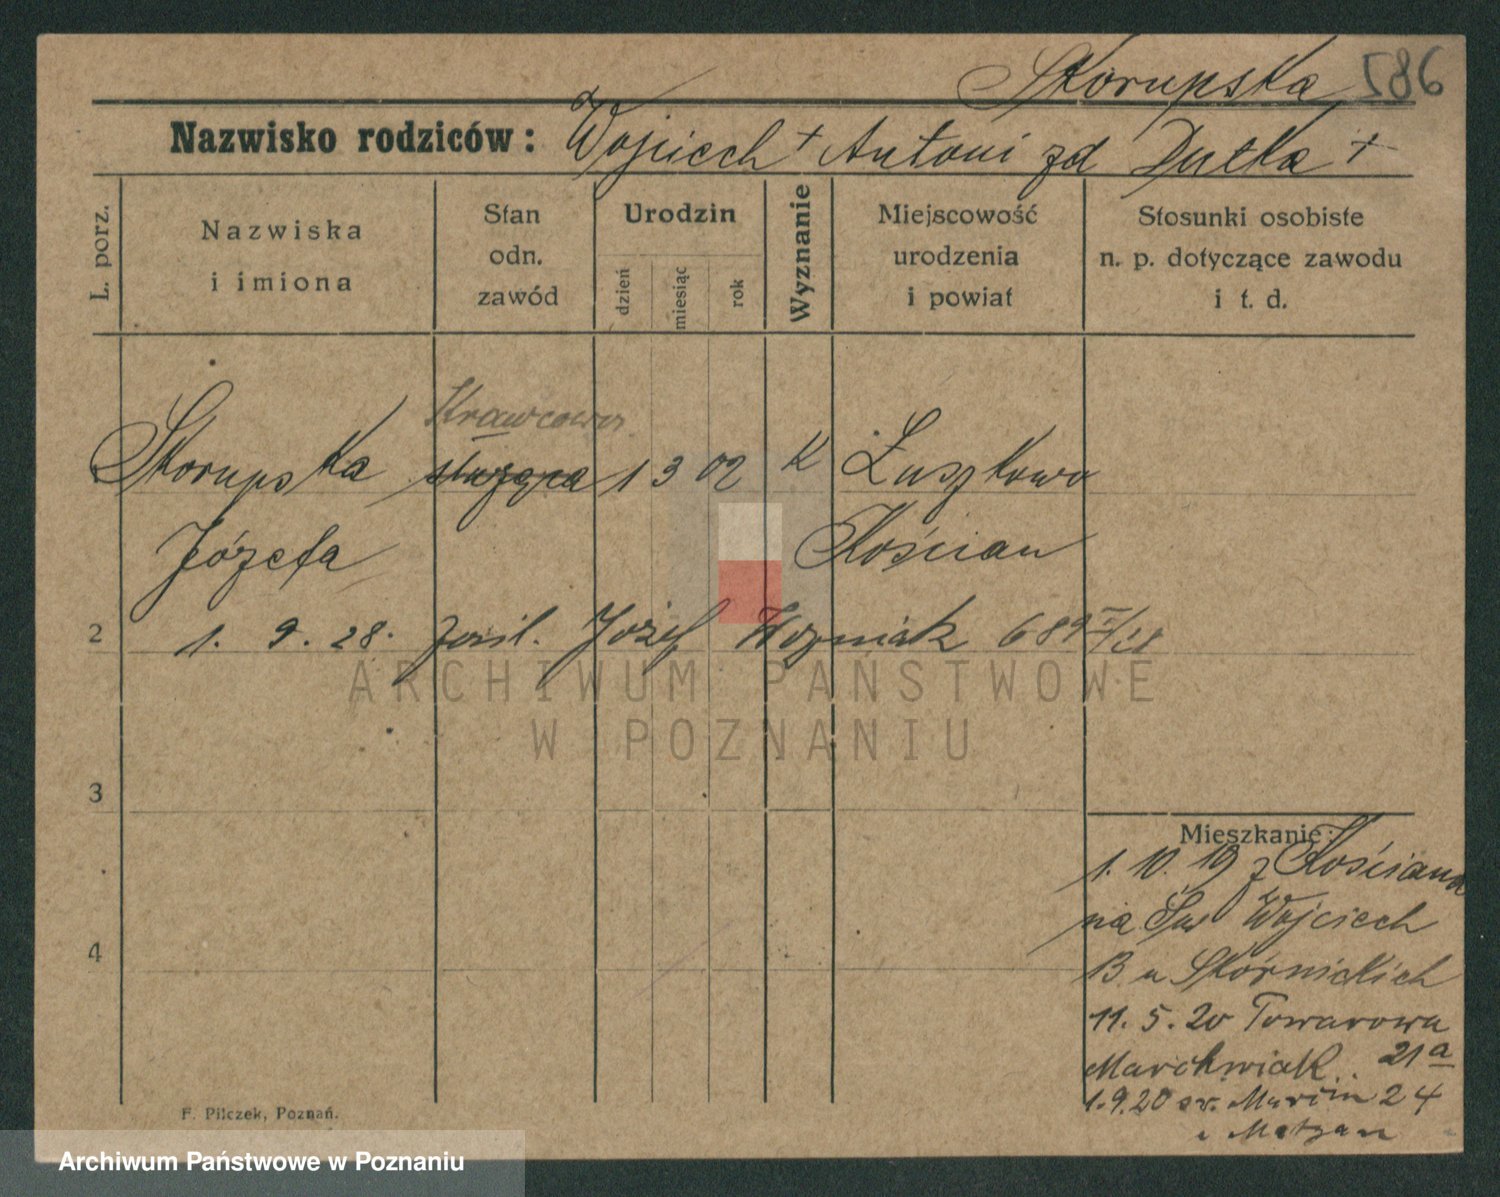 Skorupska 586
Nazwisko rodziców: Wojciech + Antoni zd Dutka +
L. porz.
Nazwiska
i imiona
Stan
odn.
zawód
Urodzin
dzień
miesiąc
rok
Wyznanie
Miejscowość
urodzenia
i powiat
Stosunki osobiste
n. p. dotyczące zawodu
i t. d.
Krawcowa
Skorupska służąca 1 3 02 K Łuszkowo
Józefa Kościan
2 1. 9. 28. Józef Wozniak 689
ARCHIWUM PAŃSTWOWE
W POZNANIU
3
Mieszkanie:
1. 10. 19 z Kościana
na Św Wojciech
13 u Skórnickich
4
11. 5. 20 Towarowa
Marckwiak 21a
1.9.20 św. Marcin 24
F. Pilczek, Poznań.
Archiwum Państwowe w Poznaniu